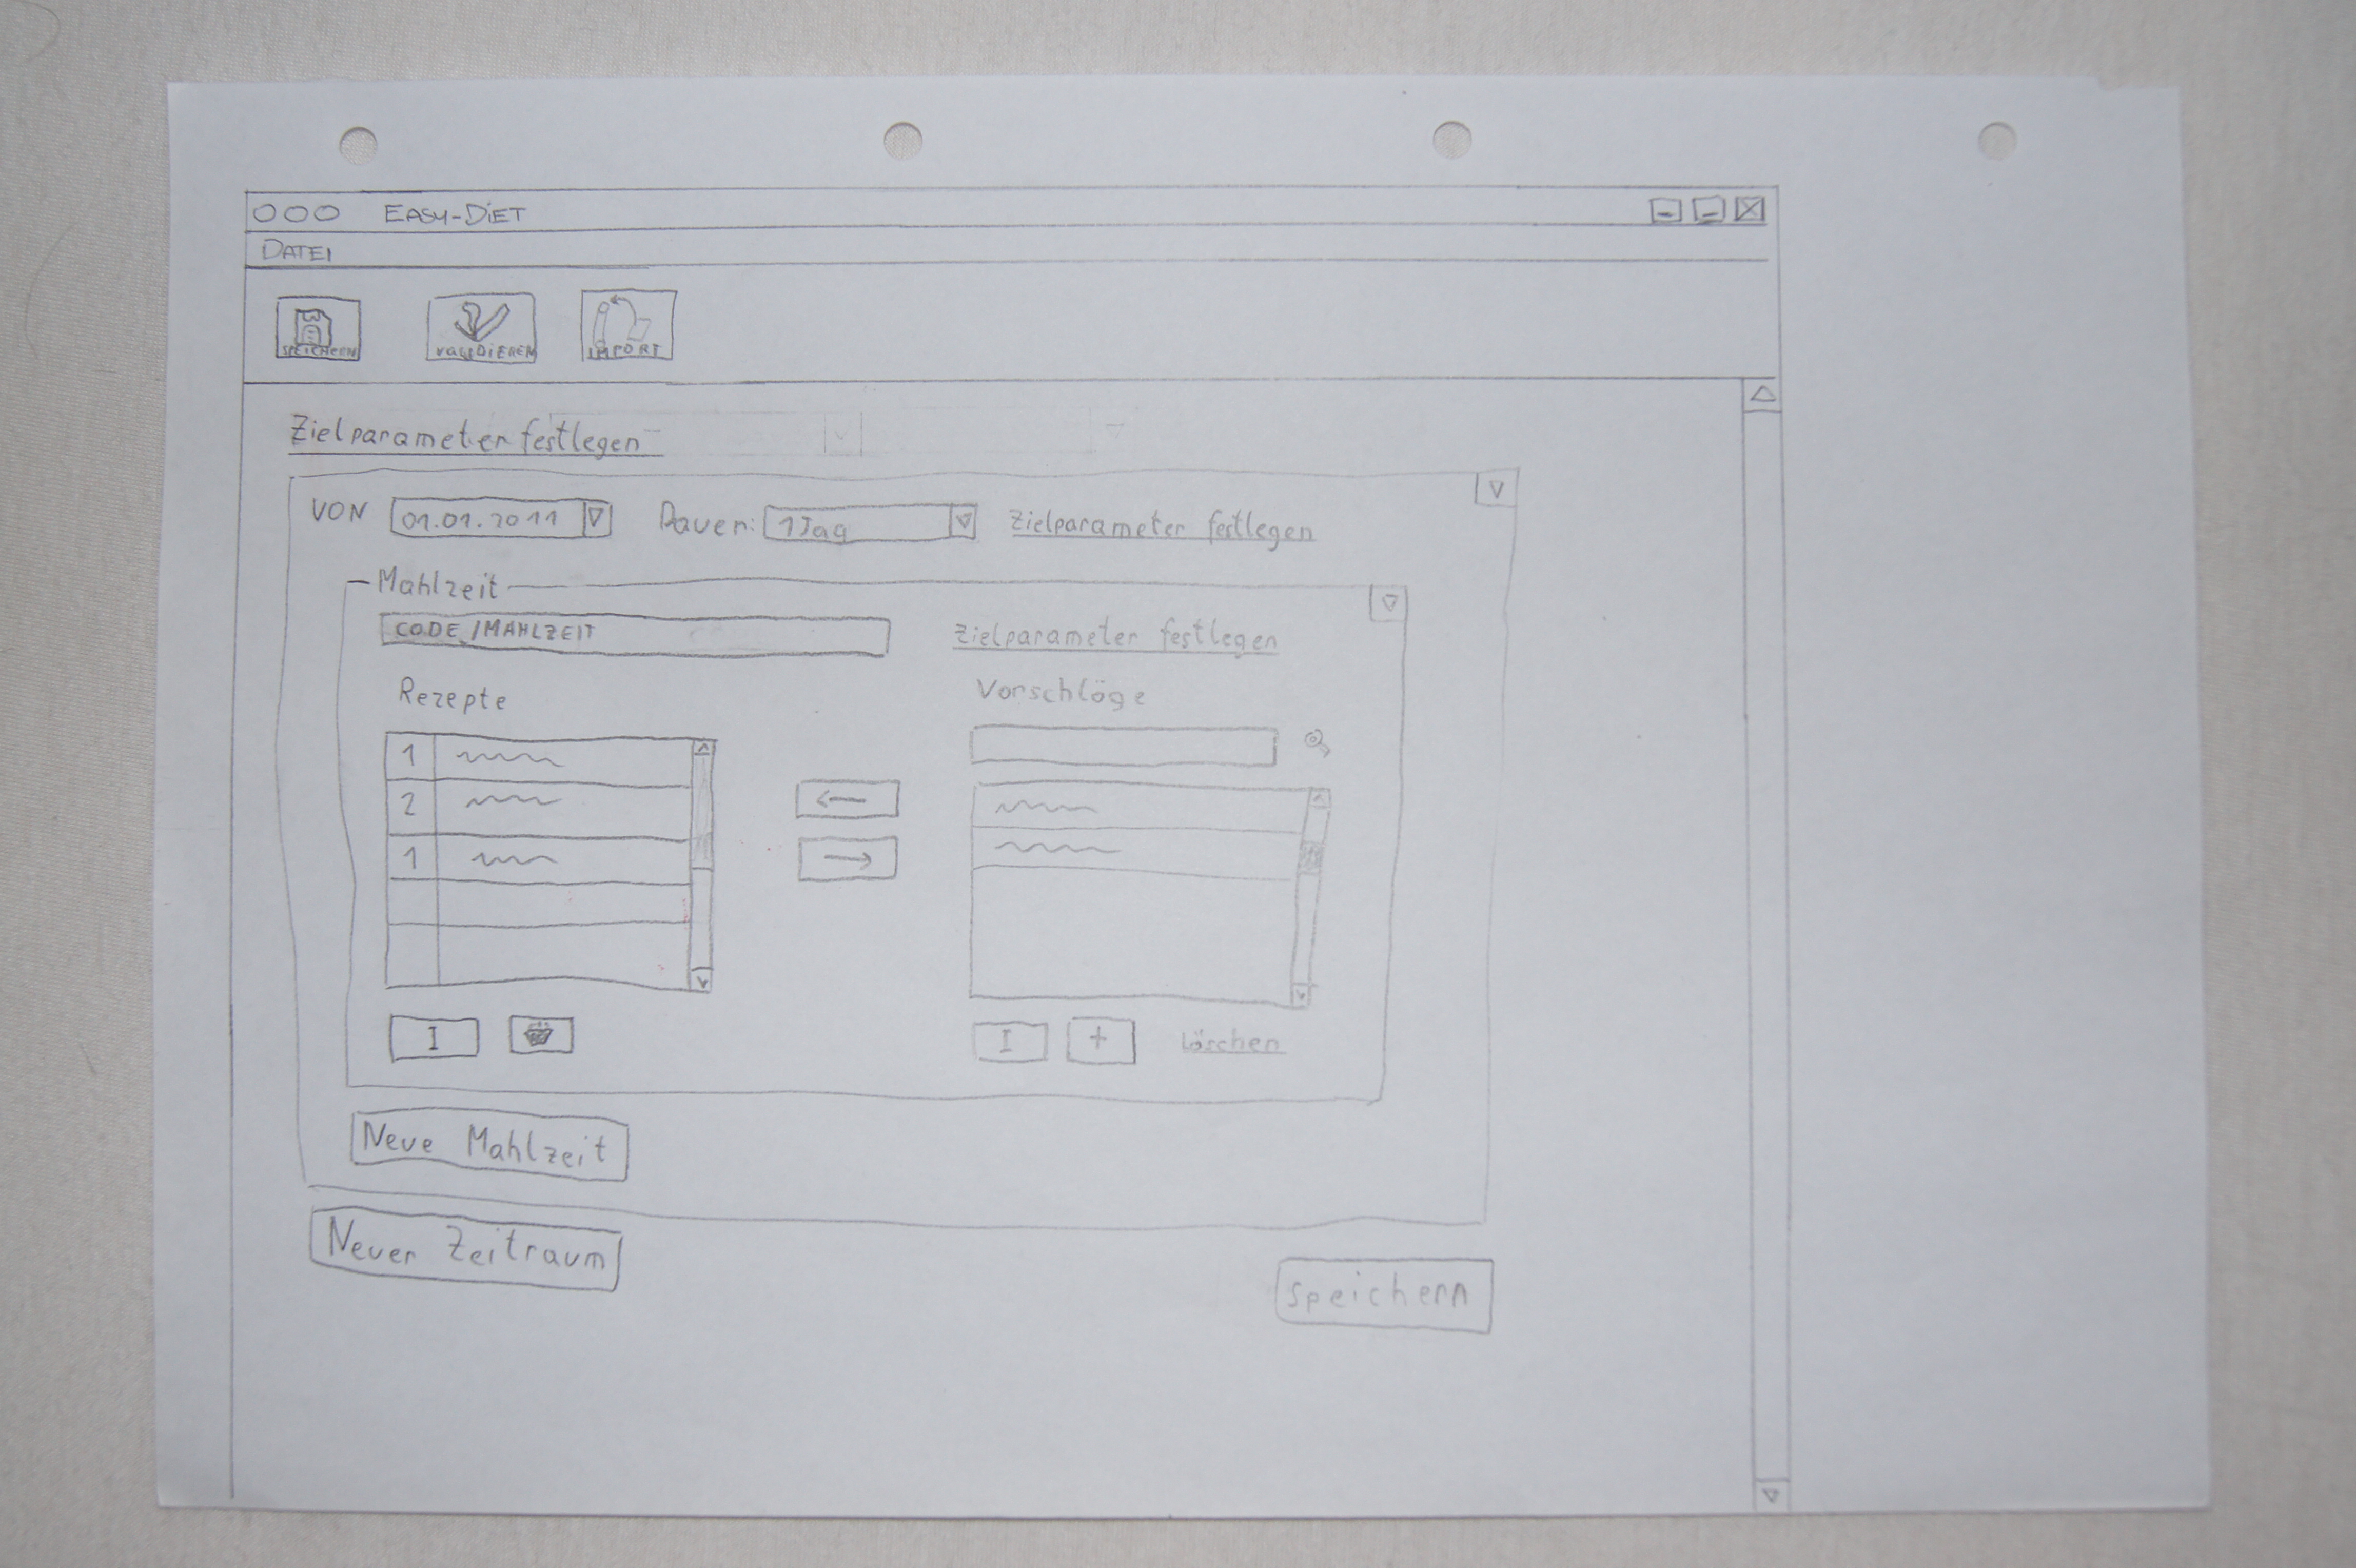 EASY-DIET
DATEI
SPEICHERN VALIDIEREN IMPORT
Zielparameter festlegen
VON 01.01.2011 Dauer: 1Tag Zielparameter festlegen
Mahlzeit
CODE/MAHLZEIT Zielparameter festlegen
Rezepte Vorschläge
1
2
1
I I + Löschen
Neue Mahlzeit
Neuer Zeitraum
Speichern